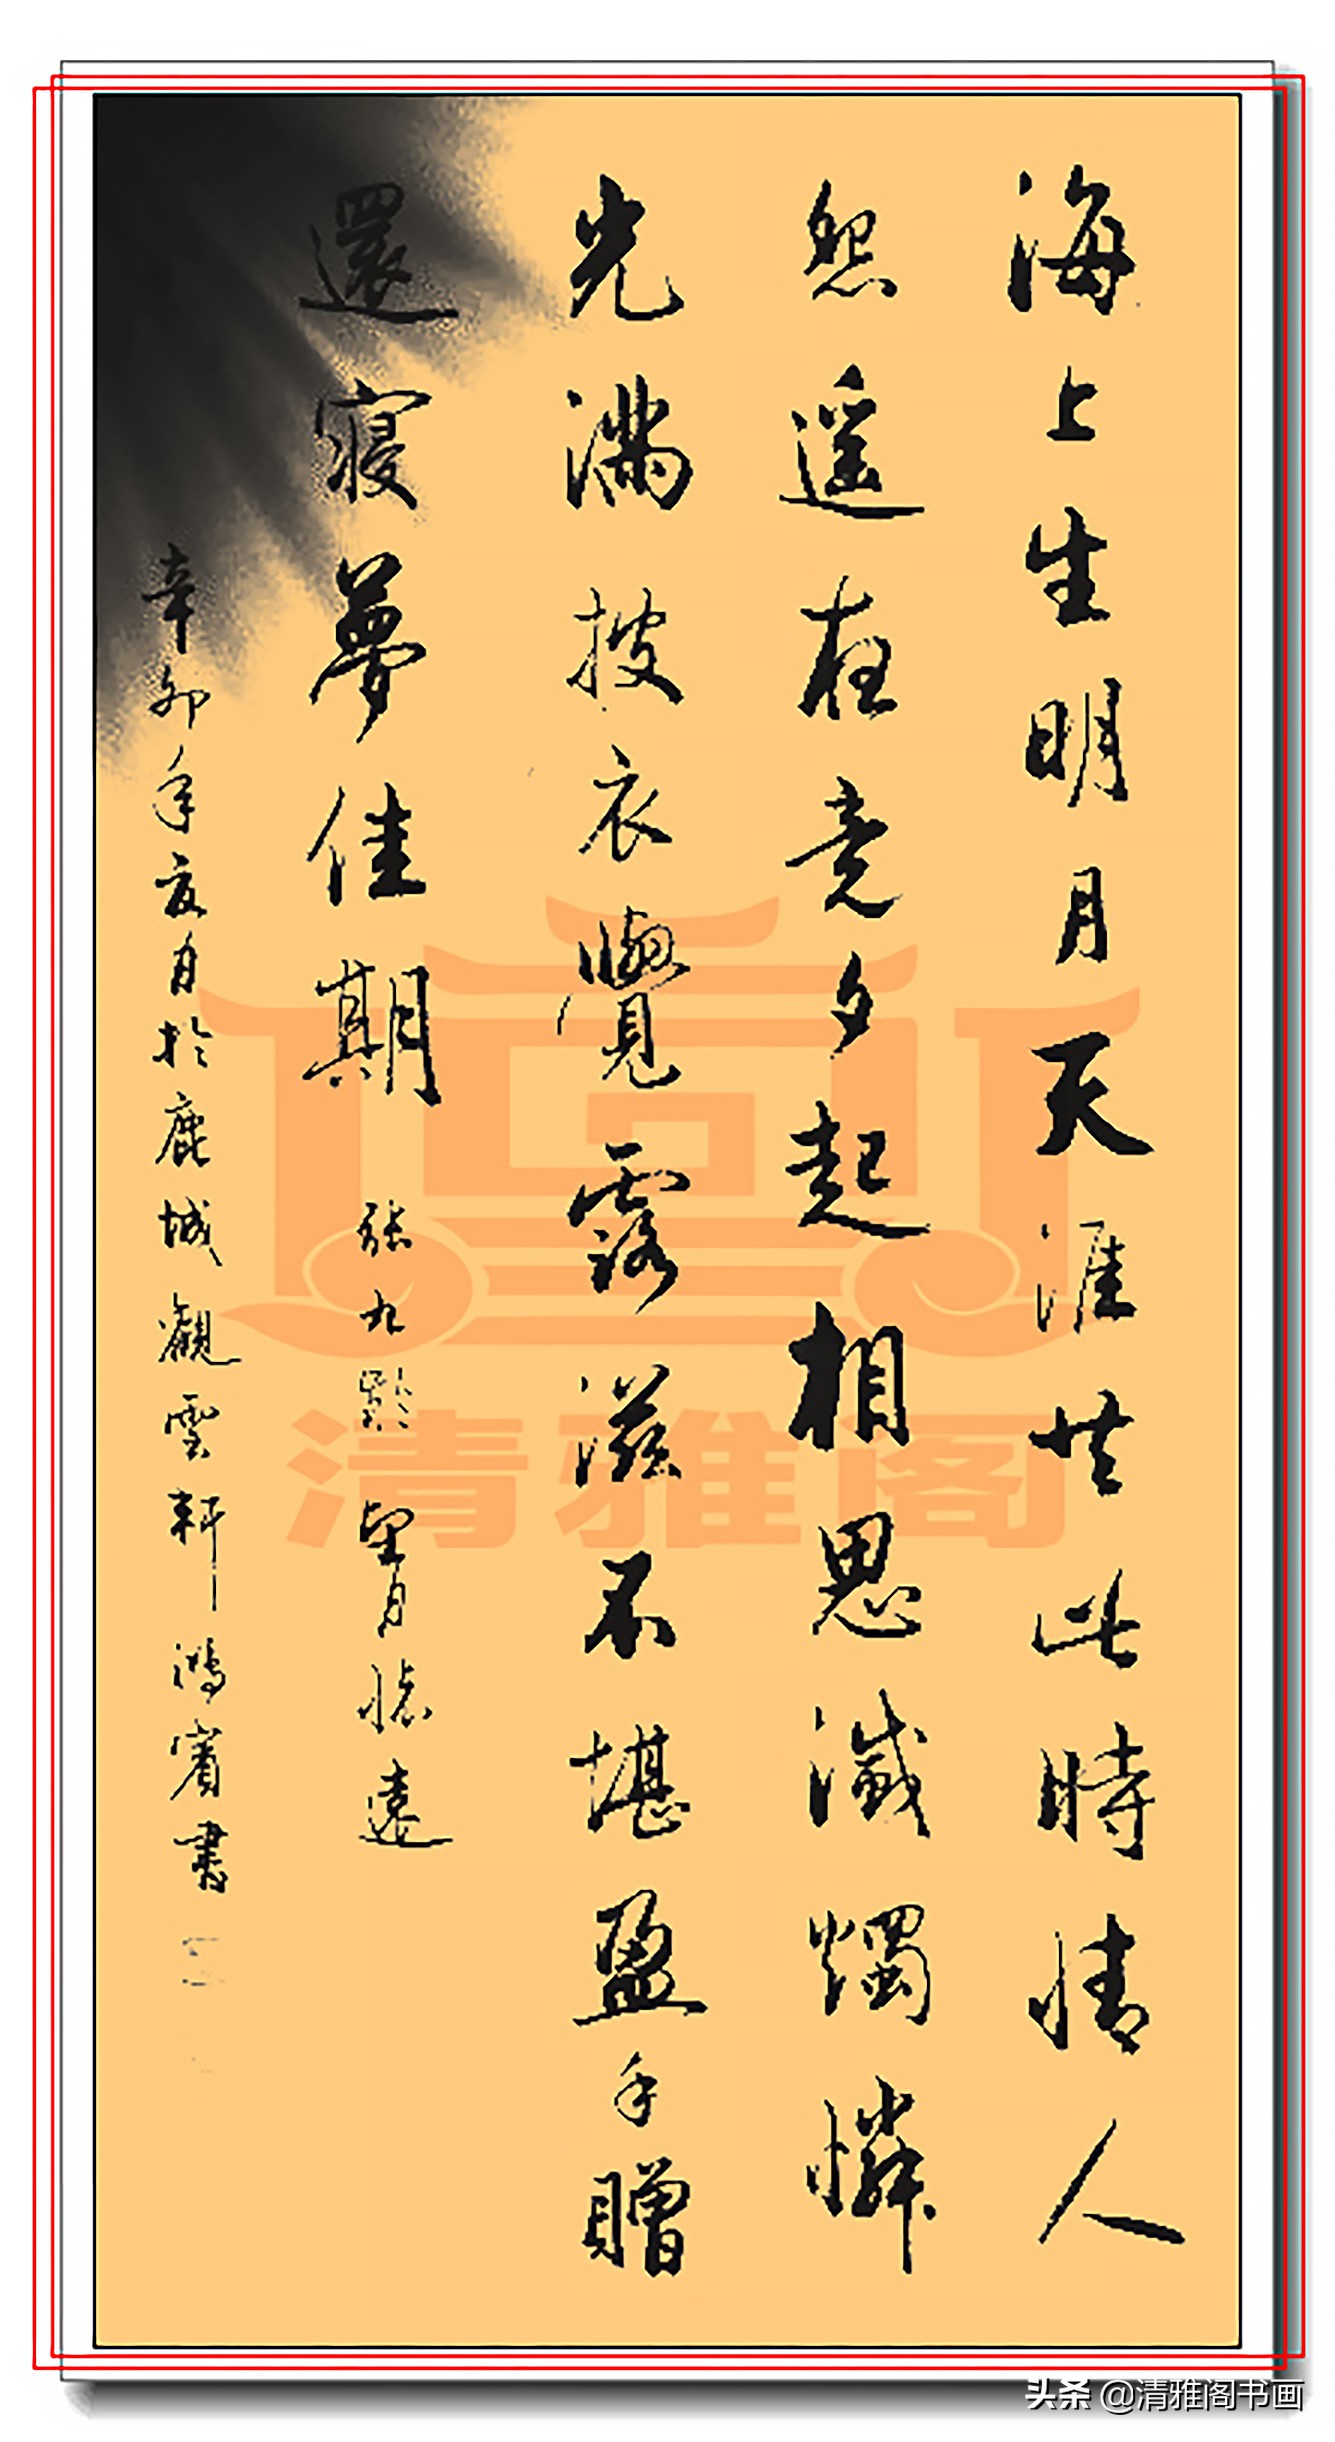 海上生明月天涯共此時情人
怨遥夜竟夕起相思滅燭憐
光滿披衣覺露滋不堪盈手贈
還寢夢佳期 張九齡望月懷遠
辛卯年夏月於鹿城觀雲軒鴻賓書
清雅阁
头条 @清雅阁书画